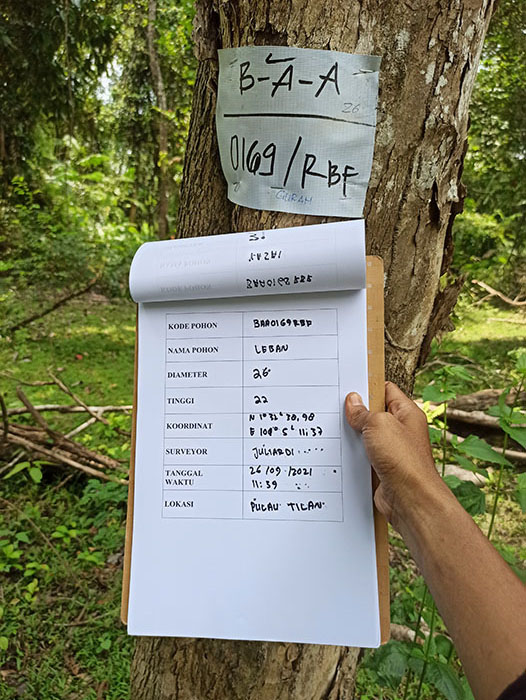 B-A-A
26
0169/RBF
KODE POHON BAA0169RBF
NAMA POHON LEBAN
DIAMETER 26
TINGGI 22
KOORDINAT N 1° 32' 30,98
E 109° 5' 11,37
SURVEYOR JULIARDI
TANGGAL 26/09/2021
WAKTU 11:39
LOKASI PULAU TILAN